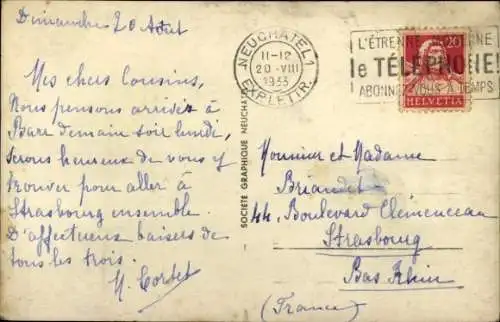 Dimanche 20 Août
Mes chers Cousins,
Nous pensons arriver à
Barr demain soir lundi,
serons heureux de vous y
trouver pour aller à
Strasbourg ensemble.
D'affectueux baisers de
tous les trois.
NEUCHATEL 1
11-12
20·VIII
1933
EXP. LETTR.
L'ÉTRENNE
le TÉLÉPHONE!
ABONNEZ-VOUS À TEMPS
20
HELVETIA
SOCIÉTÉ GRAPHIQUE NEUCHATEL
Monsieur et Madame
Briandet
44, Boulevard Clémenceau
Strasbourg
Bas Rhin
(France)